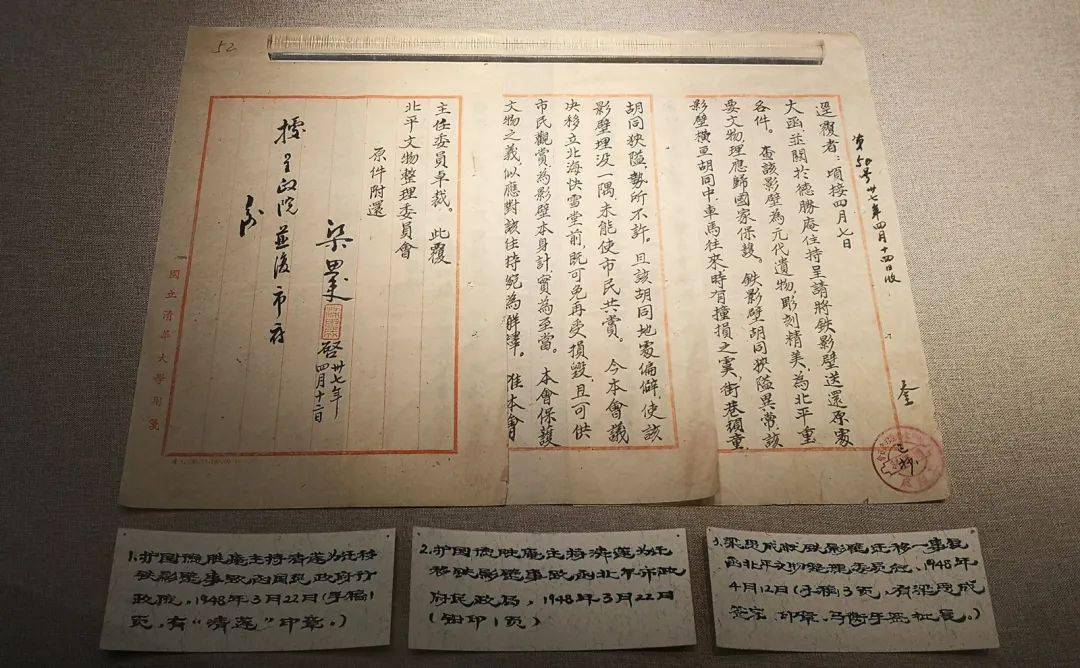 52
第50号 卅七年四月十四日收
逕覆者：頃接四月七日
大函並關於德勝庵住持呈請將鉄影壁送還原處
各件。查該影壁為元代遺物，彫刻精美，為北平重
要文物理應歸國家保護。鉄影壁胡同狹隘異常，該
影壁橫亘胡同中，車馬往來時有撞損之虞，街巷頑童
胡同狹隘，勢所不許。且該胡同地處偏僻，使該
影壁埋没一隅，未能使市民共賞。今本會議
决移立北海快雪堂前，既可免再受損毀，且可供
市民觀賞，為影壁本身計，實為至當。本會保護
文物之義，似應對該住持宛為解釋。准本會
主任委員卓裁。此覆
北平文物整理委員會
原件附還
梁思成 啓 卅七年
四月十二日
擬呈政院並復市府
國立清華大學用箋
1.护国德胜庵主持清莲为迁移
铁影壁事致函国民政府行
政院。1948年3月22日(手稿1
页，有“清莲”印章。)
2.护国德胜庵主持清莲为迁
移铁影壁事致函北平市政
府民政局，1948年3月22日
(钤印1页)
3.梁思成就铁影壁迁移一事复
函北平文物整理委员会，1948年
4月12日(手稿3页，有梁思成
签字、印章，马衡手写批展。)